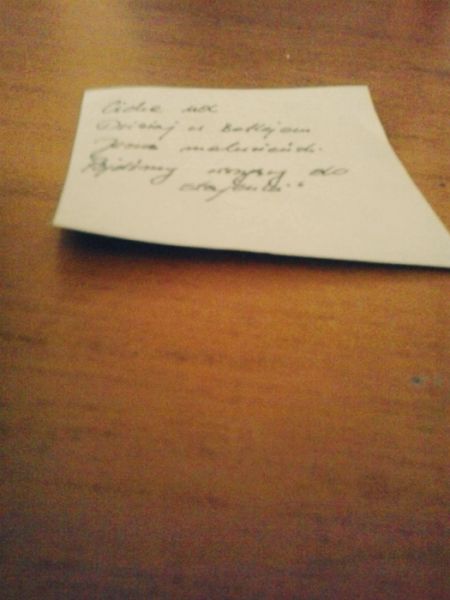 Cicha noc
Dzisiaj w Betlejem
Jezus malusieńki
Pójdźmy wszyscy do
stajenki